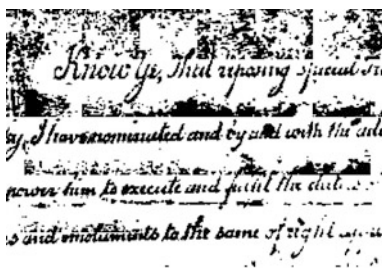 Know Ye, that reposing special
I have nominated and by and with the
power him to execute and fulfil the
s and emoluments to the same of right